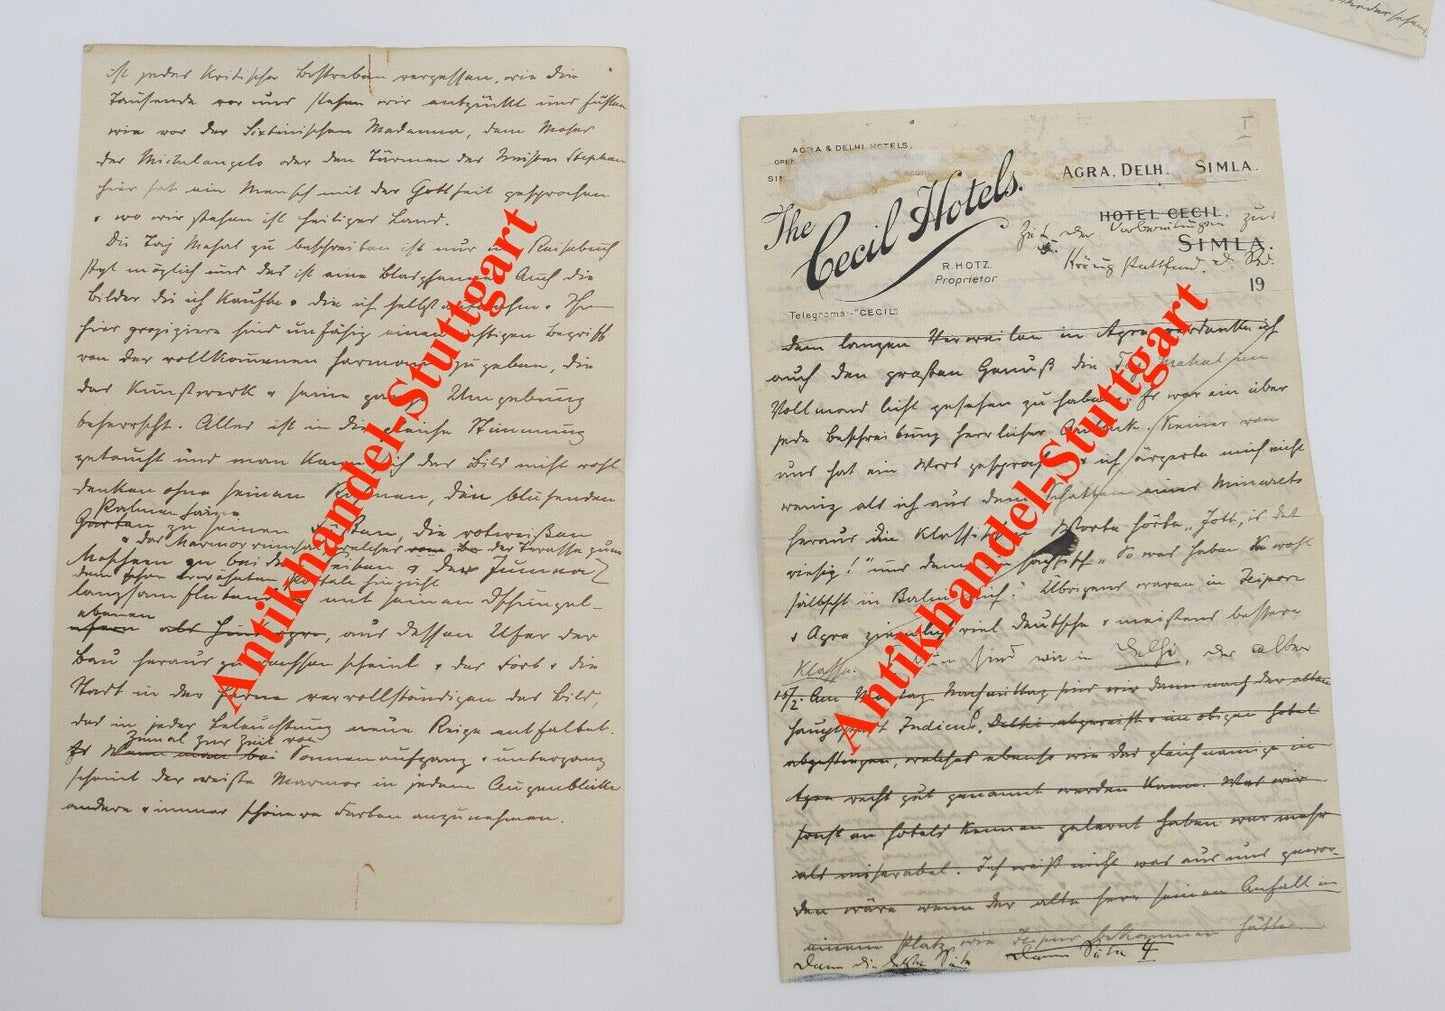 ist jedes kritische Bestreben vergessen, wie die
Tausende vor uns stehen wir entzückt und fühlen
wie vor der Sixtinischen Madonna, dem Moses
des Michelangelo oder den Türmen des Meister Stephan
hier hat ein Mensch mit der Gottheit gesprochen
& wo wir stehen ist heiliges Land.
Die Taj Mahal zu beschreiben ist nur im Reisebuch
styl möglich und das ist eine Blasphemie. Auch die
Bilder die ich kaufte & die ich selbst aufnahm &
hier sind unfähig einen richtigen Begriff
von der vollkommenen Harmonie zu geben, die
das Kunstwerk & seine ganze Umgebung
beherrscht. Alles ist in die gleiche Stimmung
getaucht und man kann sich das Bild nicht wohl
denken ohne seinen Rahmen, den blühenden
Garten zu seinen Füßen, die rotweißen
Moscheen zu beiden Seiten & der Jumna
langsam flutend mit seinen Dschungel-
ebenen
aus dessen Ufer der
Bau heraus zu wachsen scheint & das Fort & die
Stadt in der Ferne vervollständigen das Bild,
das in jeder Beleuchtung neue Reize entfaltet.
zumal zur Zeit von
Sonnenaufgang & untergang
scheint der weiße Marmor in jedem Augenblicke
andere & immer schönere Farben anzunehmen.
AGRA & DELHI HOTELS.
AGRA, DELHI SIMLA.
The Cecil Hotels.
HOTEL CECIL,
SIMLA.
Zeit der Vorbereitungen zur
R. HOTZ
Proprietor
19
Telegrams:-"CECIL"
Dem langen Verweilen in Agra verdanke ich
auch den großen Genuß die Taj Mahal im
Vollmond licht gesehen zu haben. Es war ein über
jede Beschreibung herrlicher Anblick. Keiner von
uns hat ein Wort gesprochen & ich ärgerte mich nicht
wenig als ich aus dem Schatten eines Minarets
heraus die klassischen Worte hörte „Jott, is det
riesig!" und dann „So was haben wohl
in Berlin nich". Übrigens waren in Jeipore
& Agra ziemlich viel Deutsche & meistens bessere
Klasse. sind wir in Delhi, der alten
15/2. Am Montag Nachmittag sind wir dann nach der alten
Hauptstadt Indiens, Delhi abgereist & im obigen Hotel
abgestiegen, welches ebenso wie das gleichnamige in
Agra recht gut genannt werden kann. Was wir
sonst an Hotels kennen gelernt haben war mehr
als miserabel. Ich weiß nicht was aus uns gewor-
den wäre wenn der alte Herr seinen Anfall in
einem Platz wie Jeipur bekommen hätte.
Dann die letzte Seite Dann Seite 4
Antikhandel-Stuttgart
Antikhandel-Stuttgart